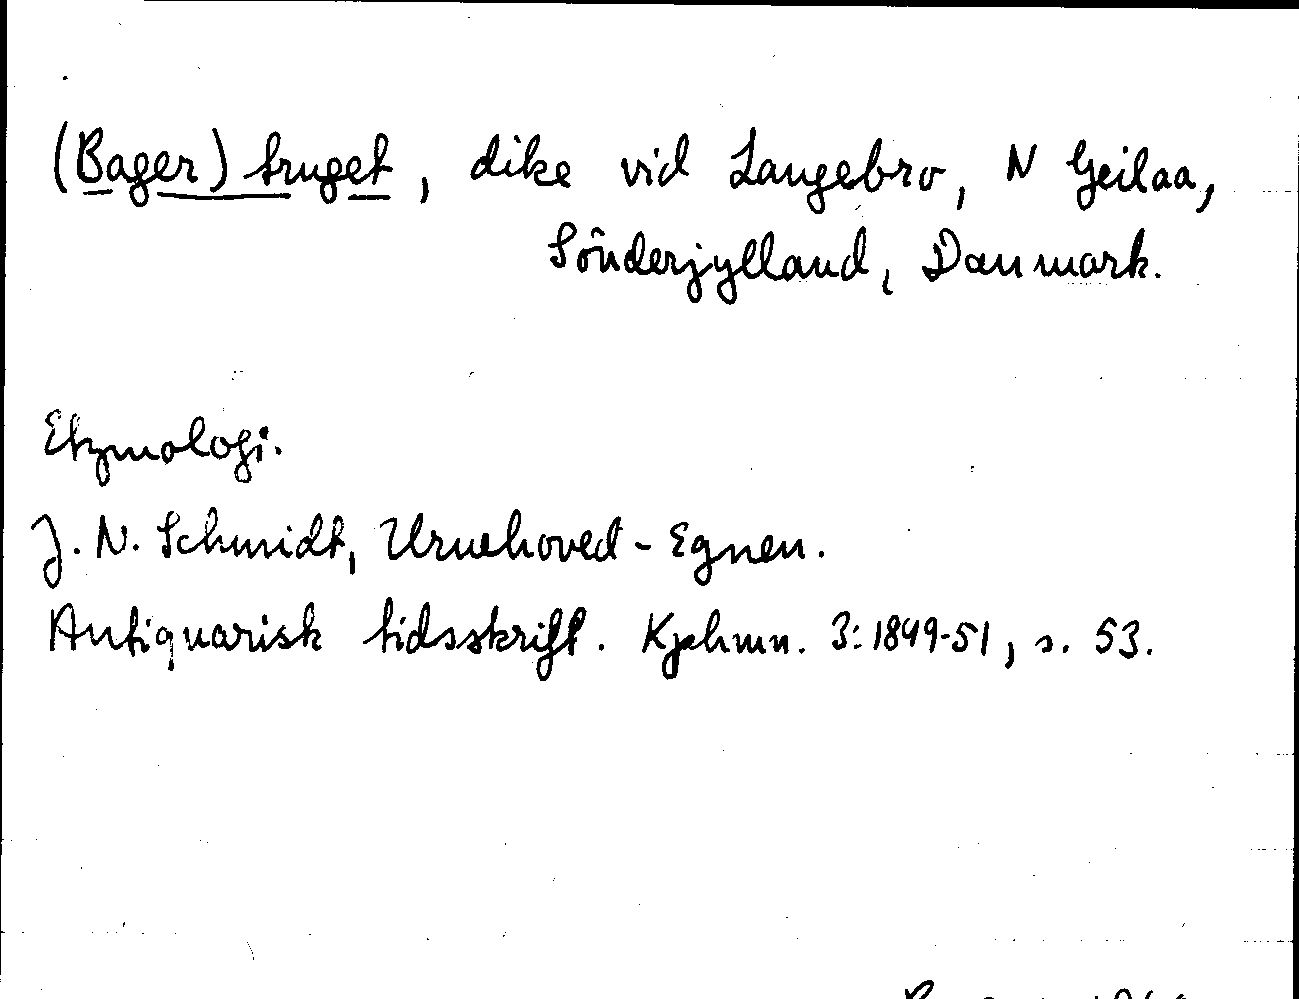 (Bager) truget, dike vid Langebro, N Geilaa,
Sönderjylland, Danmark.
Etymologi.
J. N. Schmidt, Urnehoved-Egnen.
Antiquarisk tidsskrift. Kjøhmn. 3:1849-51, s. 53.